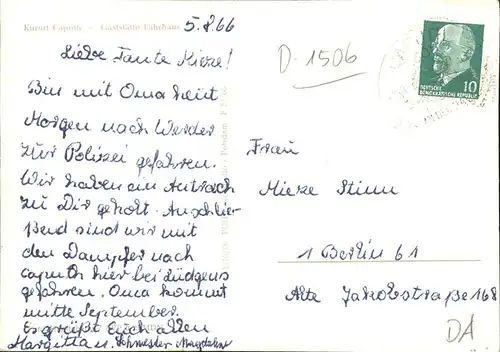 Kurort Caputh — Gaststätte Fährhaus
5.8.66
Liebe Tante Mieze!
Bin mit Oma heut
Morgen nach Werder
zur Polizei gefahren.
Wir haben ein Antrach
zu Dir geholt. Anschlie-
ßend sind wir mit
den Dampfer nach
caputh hier bei Lüdgens
gefahren. Oma kommt
mitte September.
Es grüßt Euch allen
Margitta u. Schwester Magdalene
D-1506
DEUTSCHE
DEMOKRATISCHE REPUBLIK
10
Frau
Mieze Stimm
1 Berlin 61
Alte Jakobstraße 168
DA